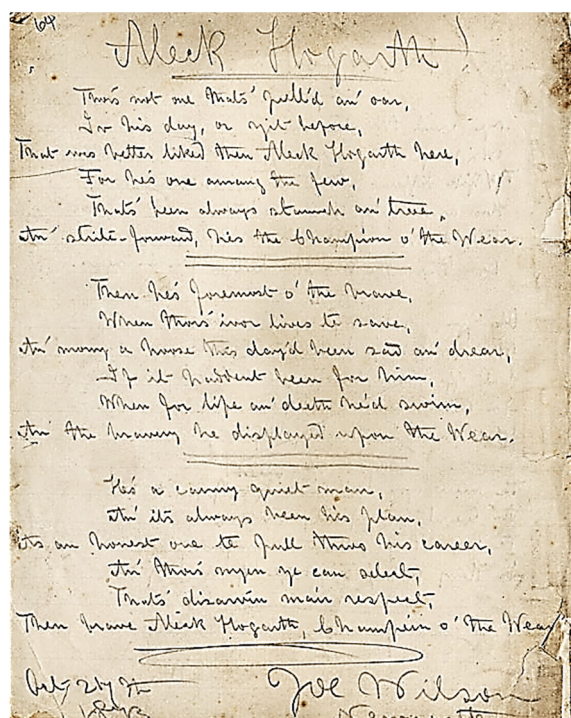 64
Aleck Hogarth!
Thor's not one thats' pull'd an' oar,
In his day, or yit before,
That was better liked then Aleck Hogarth here,
For he's one among the few,
Thats' been always staunch an' true,
An' strite-forward, he's the Champion o' the Wear.
Then he's foremost o' the brave,
When thor's ivor lives te save,
An' mony a hoose this day'd been sad an' drear,
If it haddent been for him,
When for life an' deeth he'd swim,
An' the bravery he displayed upon the Wear.
He's a canny quiet man,
An' its always been his plan,
As an honest one te pull throo his career,
An' thor's nyen ye can select,
Thats' disarvin mair respect,
Then brave Aleck Hogarth, Champein o' the Wear
Joe Wilson